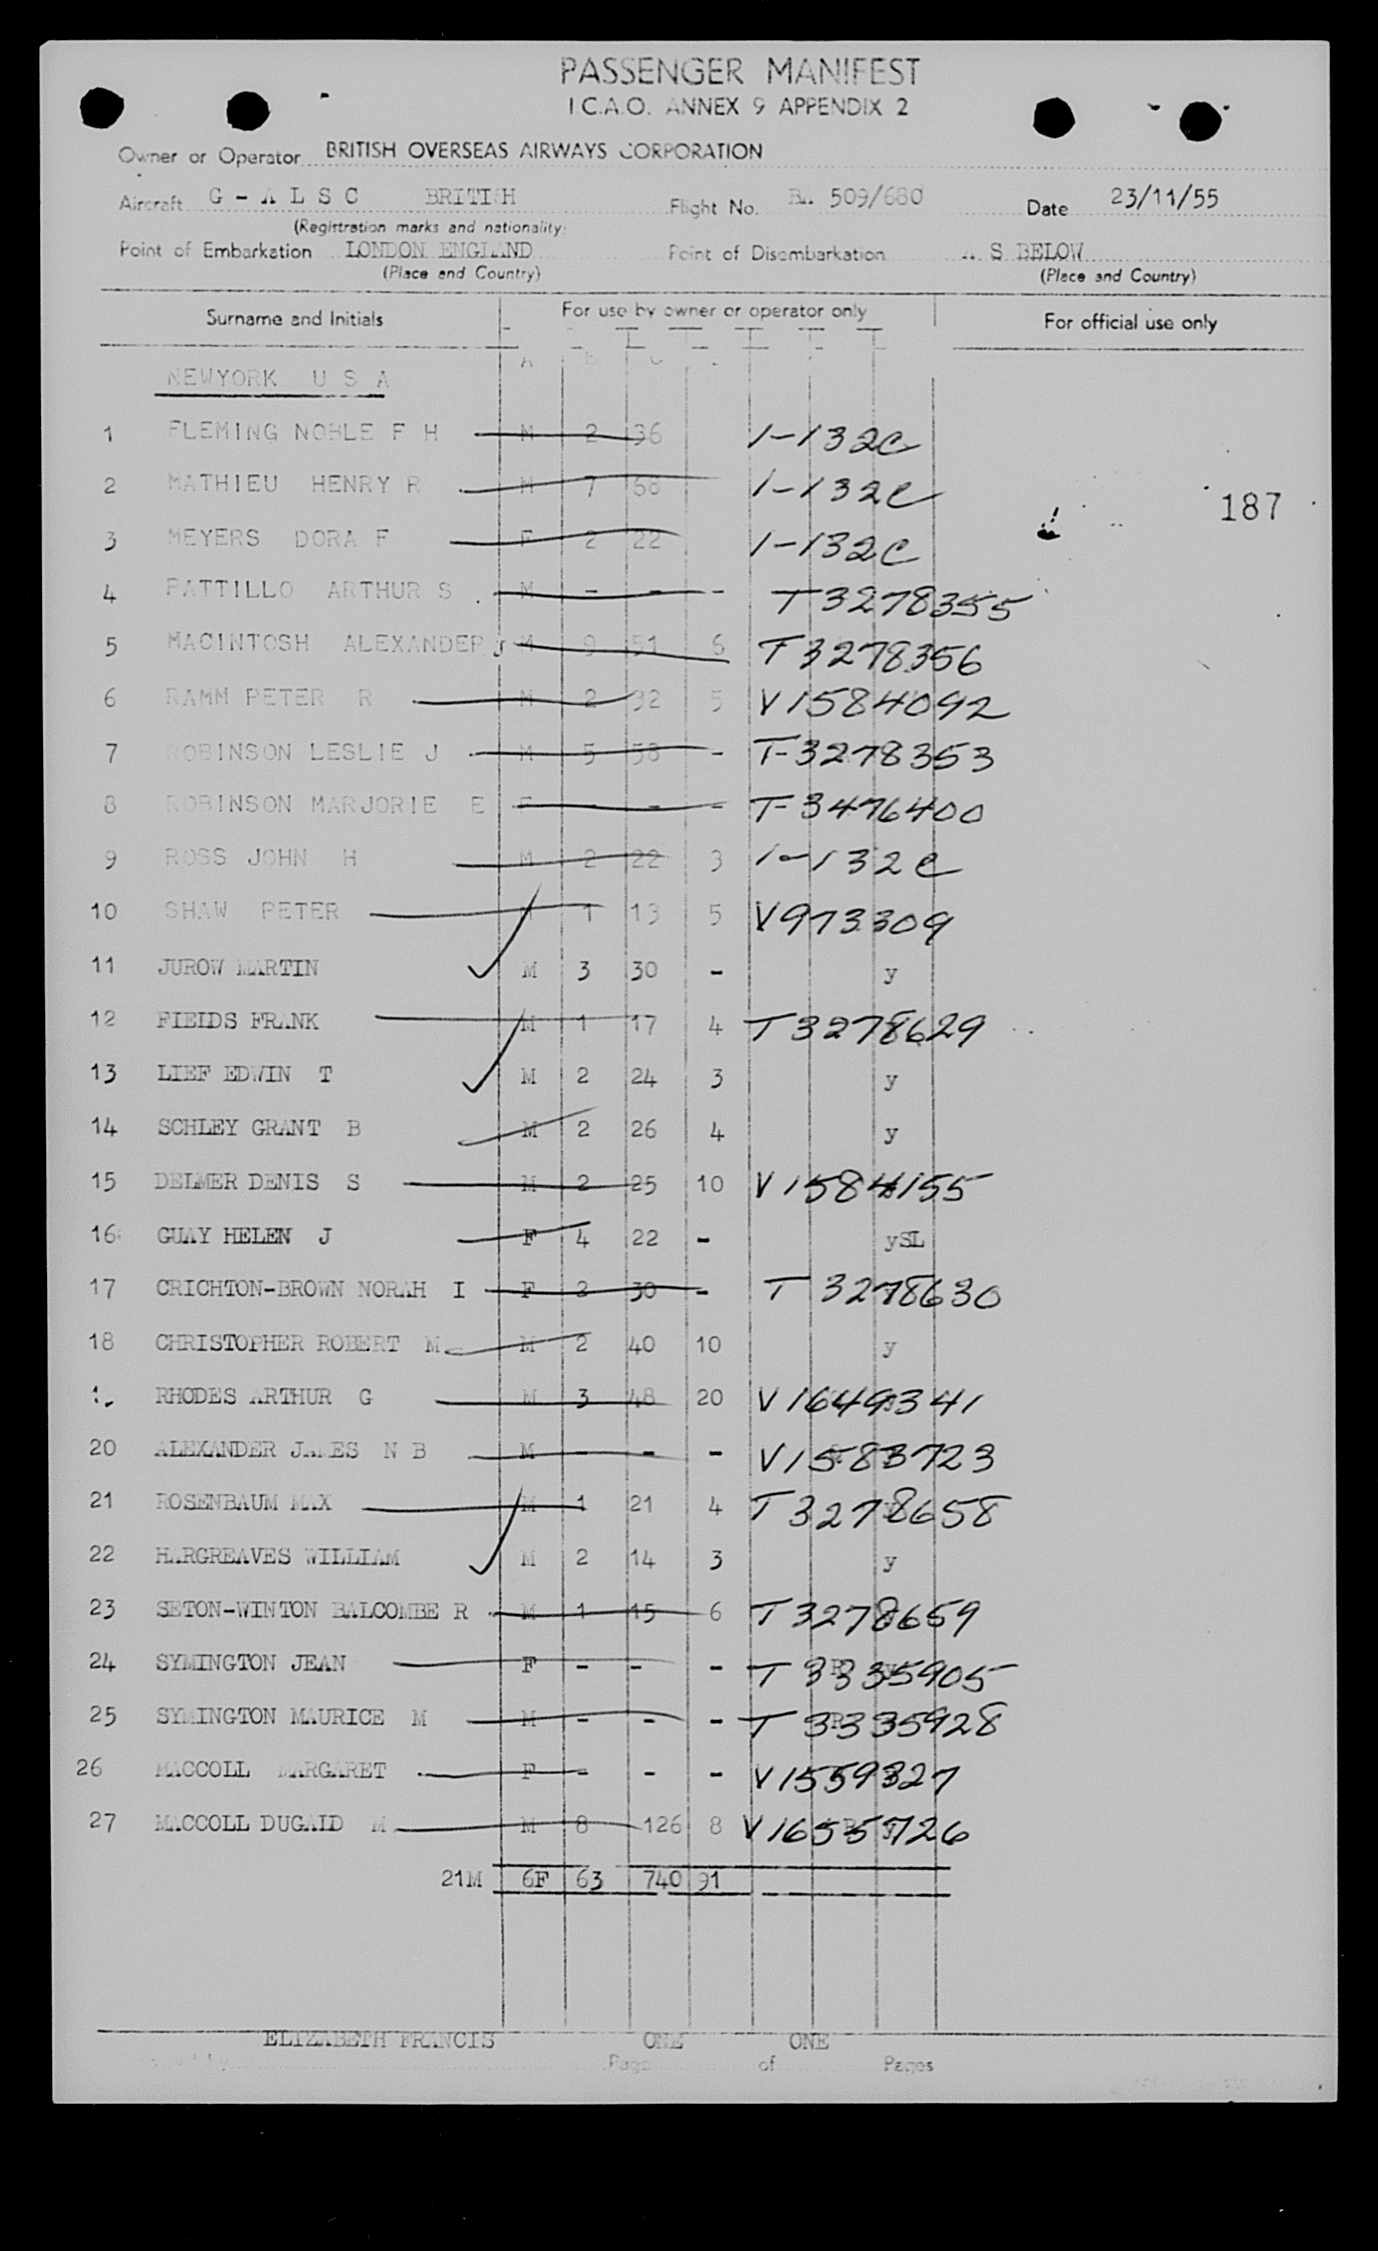 PASSENGER MANIFEST
I.C.A.O. ANNEX 9 APPENDIX 2
Owner or Operator BRITISH OVERSEAS AIRWAYS CORPORATION
Aircraft G - A L S C BRITISH Flight No. BA. 509/680 Date 23/11/55
(Registration marks and nationality)
Point of Embarkation LONDON ENGLAND Point of Disembarkation A S BELOW
(Place and Country) (Place and Country)
Surname and Initials For use by owner or operator only For official use only
A B C
NEWYORK U S A
1 FLEMING NOBLE F H M 2 36 1-132C
2 MATHIEU HENRY R M 7 68 1-132C
187
3 MEYERS DORA F F 2 22 1-132C
4 PATTILLO ARTHUR S M - - - T3278355
5 MACINTOSH ALEXANDER J M 9 51 6 T3278356
6 RAMM PETER R M 2 32 5 V1584092
7 ROBINSON LESLIE J M 5 58 - T-3278353
8 ROBINSON MARJORIE E F - - - T-3476400
9 ROSS JOHN H M 2 22 3 1-132C
10 SHAW PETER M 1 13 5 V973309
11 JUROW MARTIN M 3 30 - y
12 FIELDS FRANK M 1 17 4 T3278629
13 LIEF EDWIN T M 2 24 3 y
14 SCHLEY GRANT B M 2 26 4 y
15 DELMER DENIS S M 2 25 10 V1584155
16 GUAY HELEN J F 4 22 - ySL
17 CRICHTON-BROWN NORAH I F 2 30 - T 3278630
18 CHRISTOPHER ROBERT M M 2 40 10 y
RHODES ARTHUR G M 3 48 20 V1649341
20 ALEXANDER JAMES N B M - - - V1583723
21 ROSENBAUM MAX M 1 21 4 T3278658
22 HARGREAVES WILLIAM M 2 14 3 y
23 SETON-WINTON BALCOMBE R M 1 15 6 T3278659
24 SYMINGTON JEAN F - - - T 3335905
25 SYMINGTON MAURICE M M - - - T 3335928
26 MACCOLL MARGARET F - - - V1559327
27 MACCOLL DUGALD M M 8 126 8 V1655726
21M 6F 63 740 91
ELIZABETH FRANCIS ONE ONE
Page of Pages